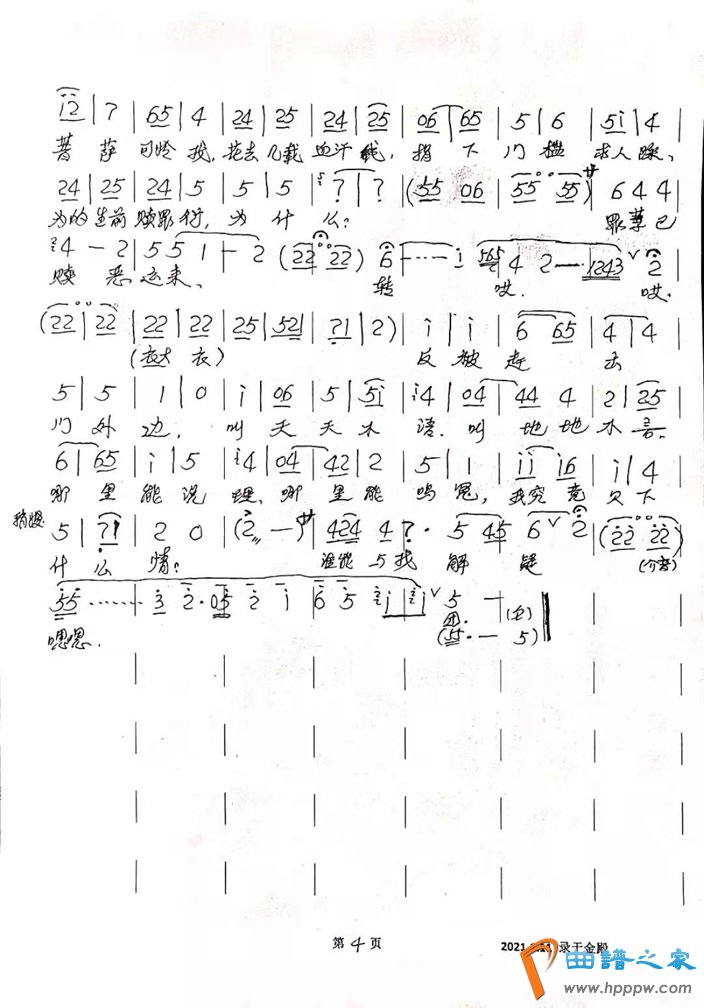 i2 | 7 | 65 | 4 | 24 | 25 | 24 | 25 | 06 | 65 | 5 | 6 | 5i | 4
菩萨可怜我,花去几载血汗钱,捐下门槛求人踩、
24 | 25 | 24 | 5 | 5 | 5 | 7 | 7 | (55 06 | 55 55) サ 6 4 4
为的生前赎罪行,为什么? 罪孽已
4 - 2 | 5 5 1 - 2 (22 22) 6 - i 565 4 2 - 1243 v 2
赎 恶运来、 转 哎. 哎.
(22 | 22 | 22 | 22 | 25 | 52 | 71 | 2) | i | i | 6 | 65 | 4 | 4
(衣大 衣) 反被赶 去
5 | 5 | 1 | 0 | i | 06 | 5 | 5i | 4 | 04 | 44 4 | 2 | 25
门外边, 叫天天不语.叫地地不言.
6 | 65 | i | 5 | 4 | 04 | 42 | 2 | 5 | 1 | ii | i6 | i | 4
哪里能说理、哪里能鸣冤, 我究竟欠下
稍慢 5 | 71 | 2 0 | (2 -) サ 424 4 7· 5 45 6 v 2 (22 22)
什么情? 谁能与我解疑
55 3 2·05 2 i 6 5 i i v 5 -
嗯嗯. 团.
(55·- 5)
第 4 页
2021 录于金殿
曲谱之家
www.hppw.com